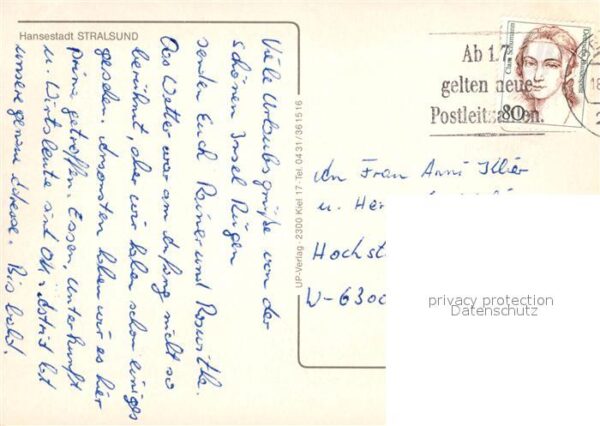 Hansestadt STRALSUND
Viele Urlaubsgrüße von der
schönen Insel Rügen
senden Euch Rainer und Roswitha.
Das Wetter war am Anfang nicht so
berühmt, aber wir haben schon einiges
gesehen. Ansonsten haben wir es hier
prima getroffen. Essen, Unterkunft
u. Wirtsleute sind OK.
unsere genaue Adresse. Bis bald.
UP-Verlag · 2300 Kiel 17 · Tel. 04 31/36 15 16
Ab 1.7.
gelten neue
Postleitzahlen.
Clara Schumann
Deutsche Bundespost
80
An Frau Anni
u.
Hochst
W-6300
privacy protection
Datenschutz